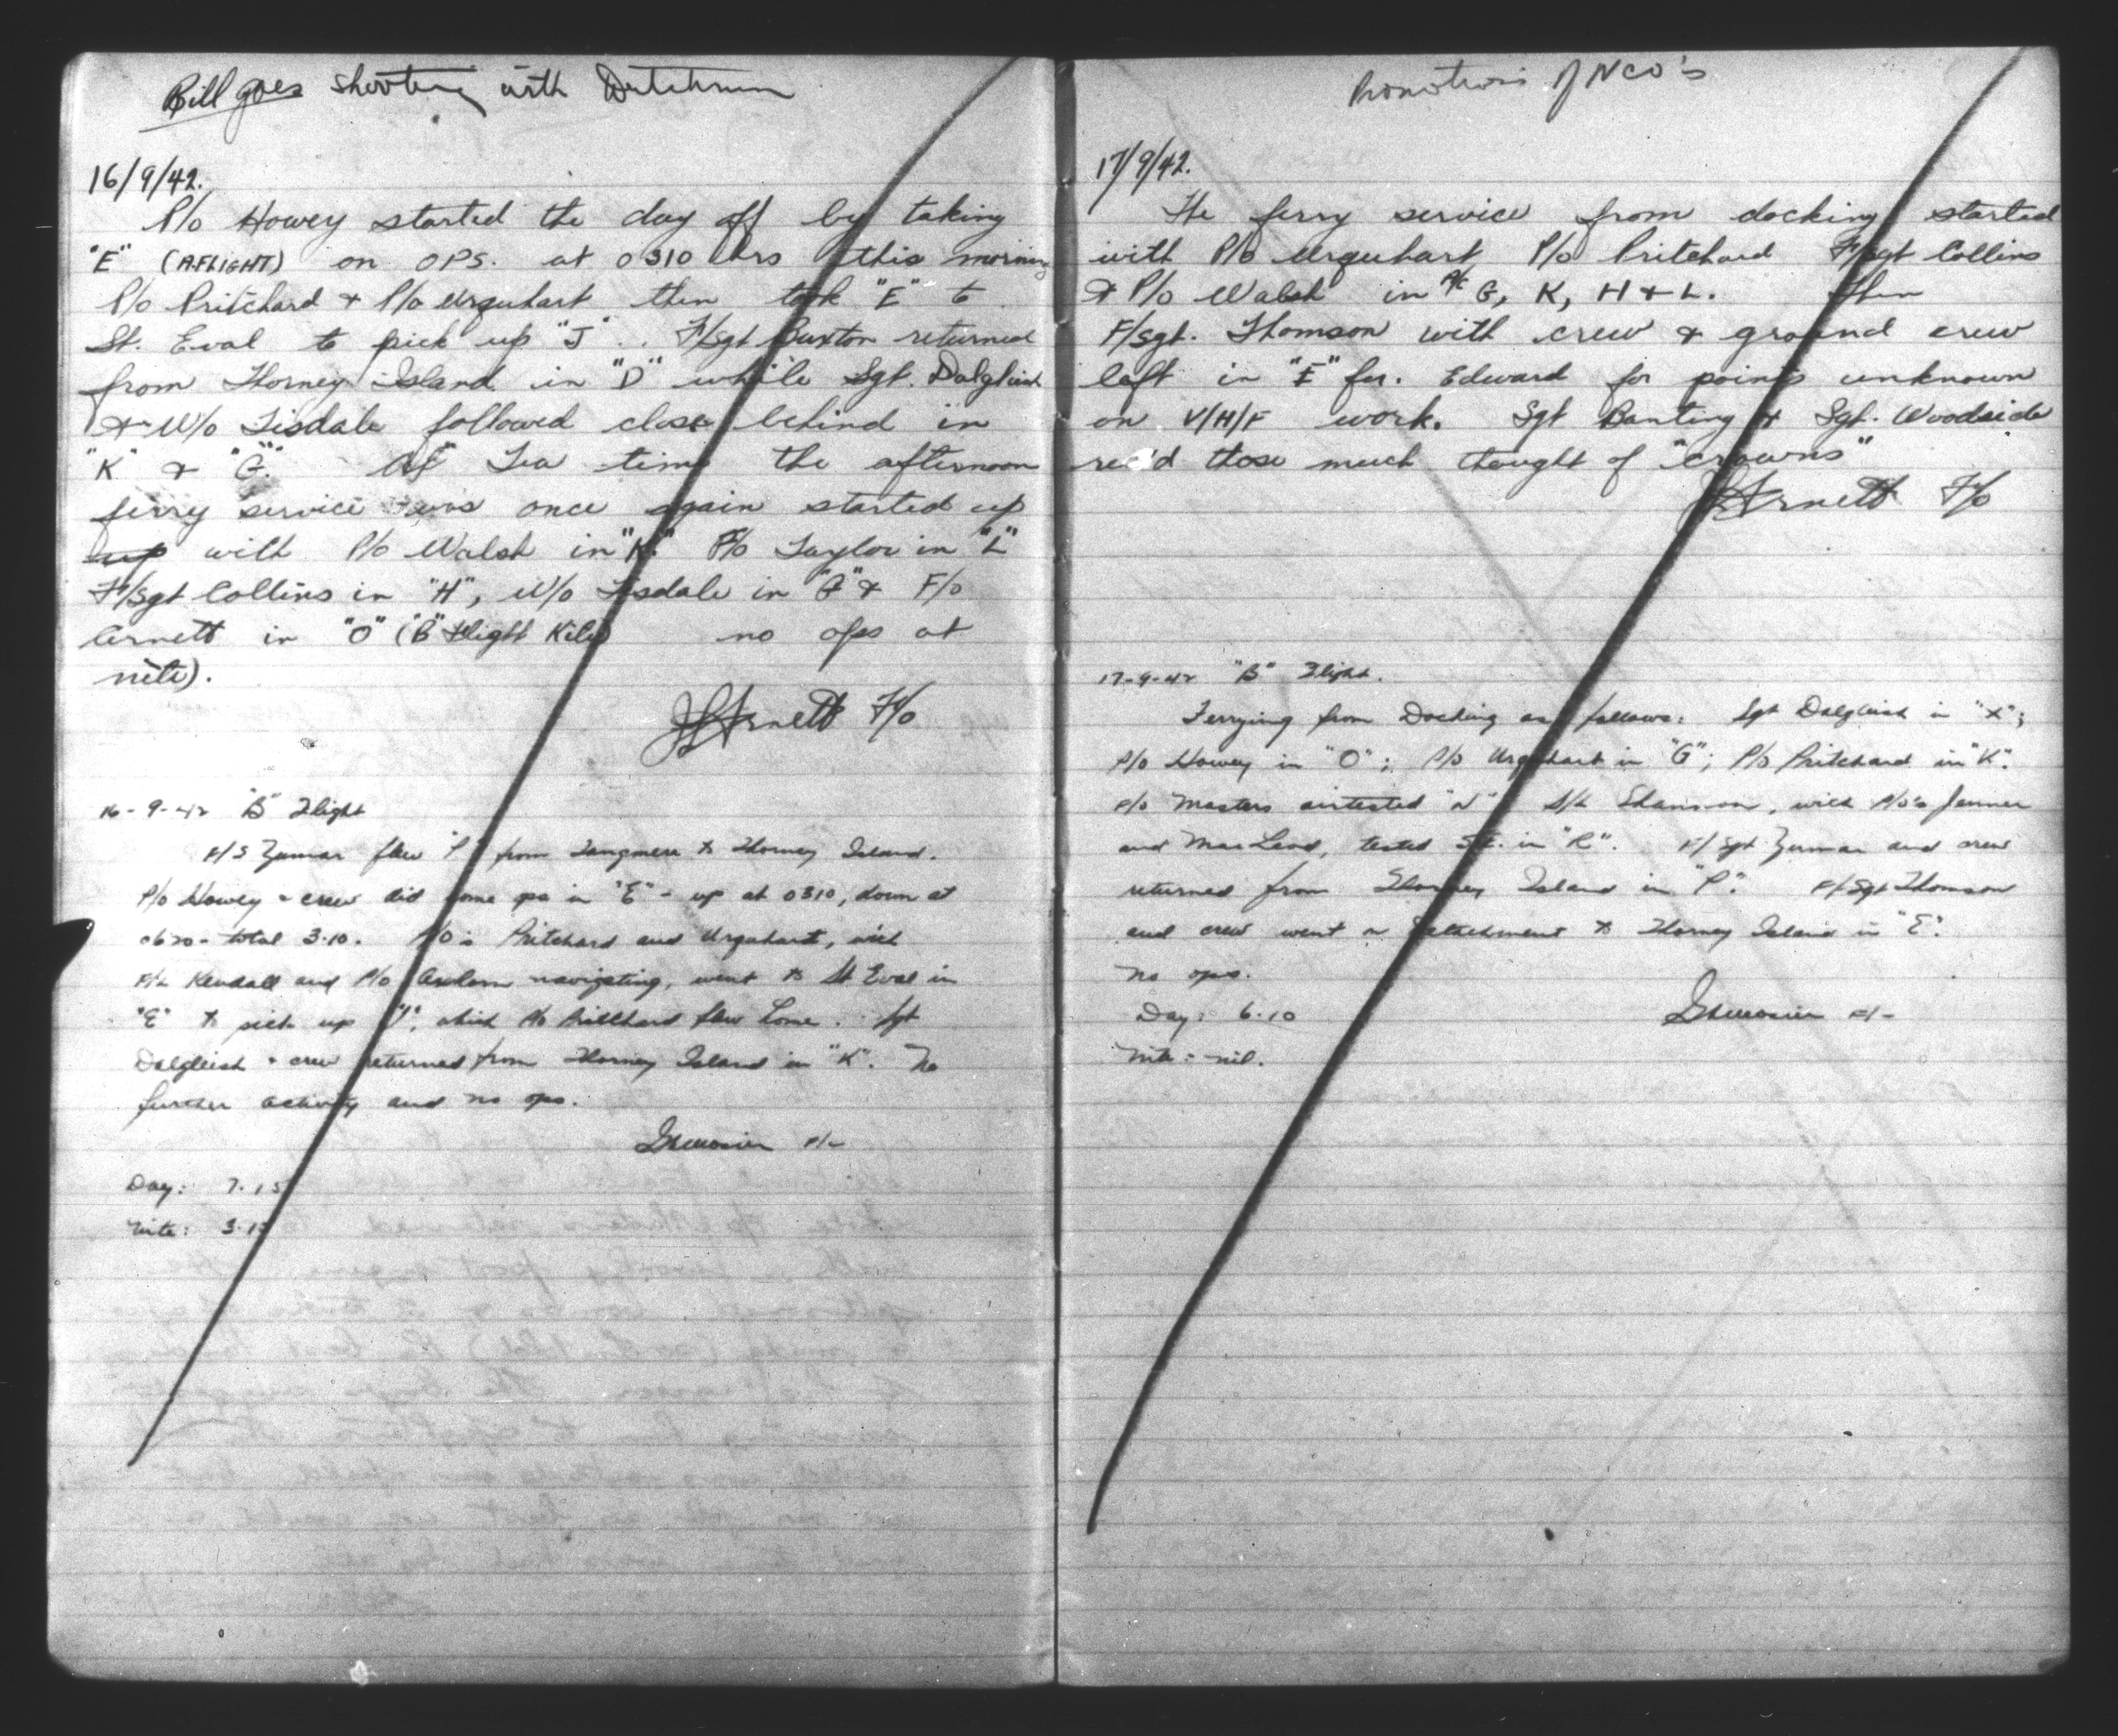 Bill goes shooting with Dutchman
16/9/42.
P/o Howey started the day off by taking
"E" (A FLIGHT) on OPS. at 0310 hrs this morning
P/o Pritchard & P/o Urquhart then took "E" to
St. Eval to pick up "J". F/Sgt Buxton returned
from Thorney Island in "D" while Sgt. Dalgliesh
& W/o Tisdale followed close behind in
"K" & "G". At Tea time the afternoon
ferry service was once again started up
up with P/o Walsh in "K" P/o Taylor in "L"
F/Sgt Collins in "H", W/o Tisdale in "G" & F/o
Arnett in "O" ("B" Flight Kite) no ops at
nite).
Arnett F/o
16-9-42 "B" Flight
F/S Zumar flew "P" from Tangmere to Thorney Island.
P/o Howey & crew did some ops in "E" - up at 0310, down at
0620 - total 3.10. P/O's Pritchard and Urquhart, with
F/L Kendall and P/o navigating, went to St Eval in
"E" to pick up "J", which P/o Pritchard flew home. Sgt
Dalgleish & crew returned from Thorney Island in "K". No
further activity and no ops.
F/L
Day: 7.15
Nite: 3.15
Promotions of NCO's
17/9/42.
The ferry service from docking started
with P/o Urquhart P/o Pritchard F/Sgt Collins
& P/o Walsh in A/C G, K, H & L. Then
F/Sgt. Thomson with crew & ground crew
left in "E" for. Edward for points unknown
on V/H/F work. Sgt Banting & Sgt. Woodside
rec'd those much thought of "crowns"
Arnett F/o
17-9-42 "B" Flight.
Ferrying from Docking as follows: Sgt Dalgleish in "X";
P/o Howey in "O"; P/o Urquhart in "G"; P/o Pritchard in "K".
F/o Masters airtested "N". S/L Shannon, with P/o's Jenner
and MacLeod, tested S.E. in "R". F/Sgt Zumar and crew
returned from Thorney Island in "P". F/Sgt Thomson
and crew went on detachment to Thorney Island in "E".
No ops.
Day: 6.10
F/L
Nite: nil.